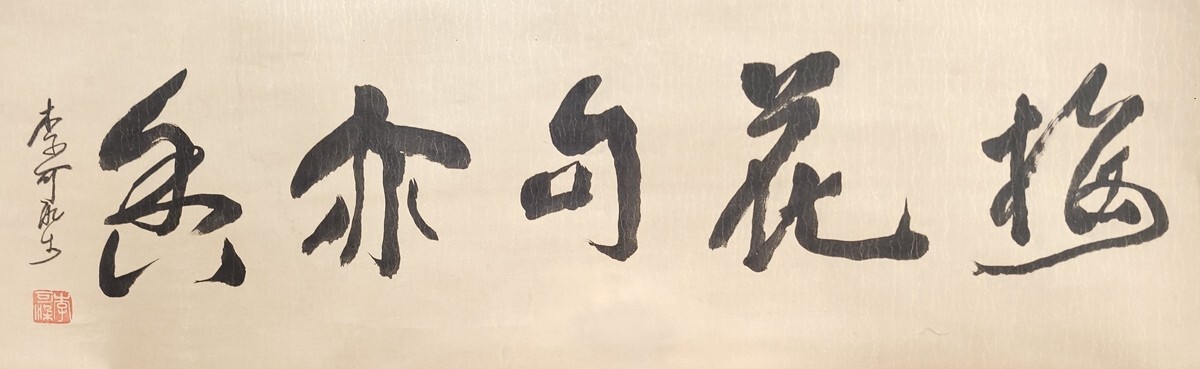 梅花句亦香
李可染书
李可染